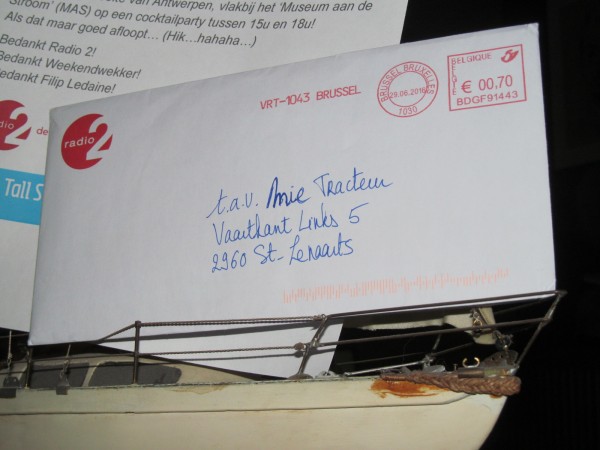 van Antwerpen, vlakbij het 'Museum aan de
Stroom' (MAS) op een cocktailparty tussen 15u en 18u!
Als dat maar goed afloopt… (Hik…hahaha…)
Bedankt Radio 2!
Bedankt Weekendwekker!
Bedankt Filip Ledaine!
radio
de
Tall S
radio 2
VRT-1043 BRUSSEL
BRUSSEL BRUXELLES
29.06.2016
1030
BELGIQUE
€ 00,70
BDGF91443
t.a.v. Amie Tracteur
Vaartkant Links 5
2960 St-Lenaarts